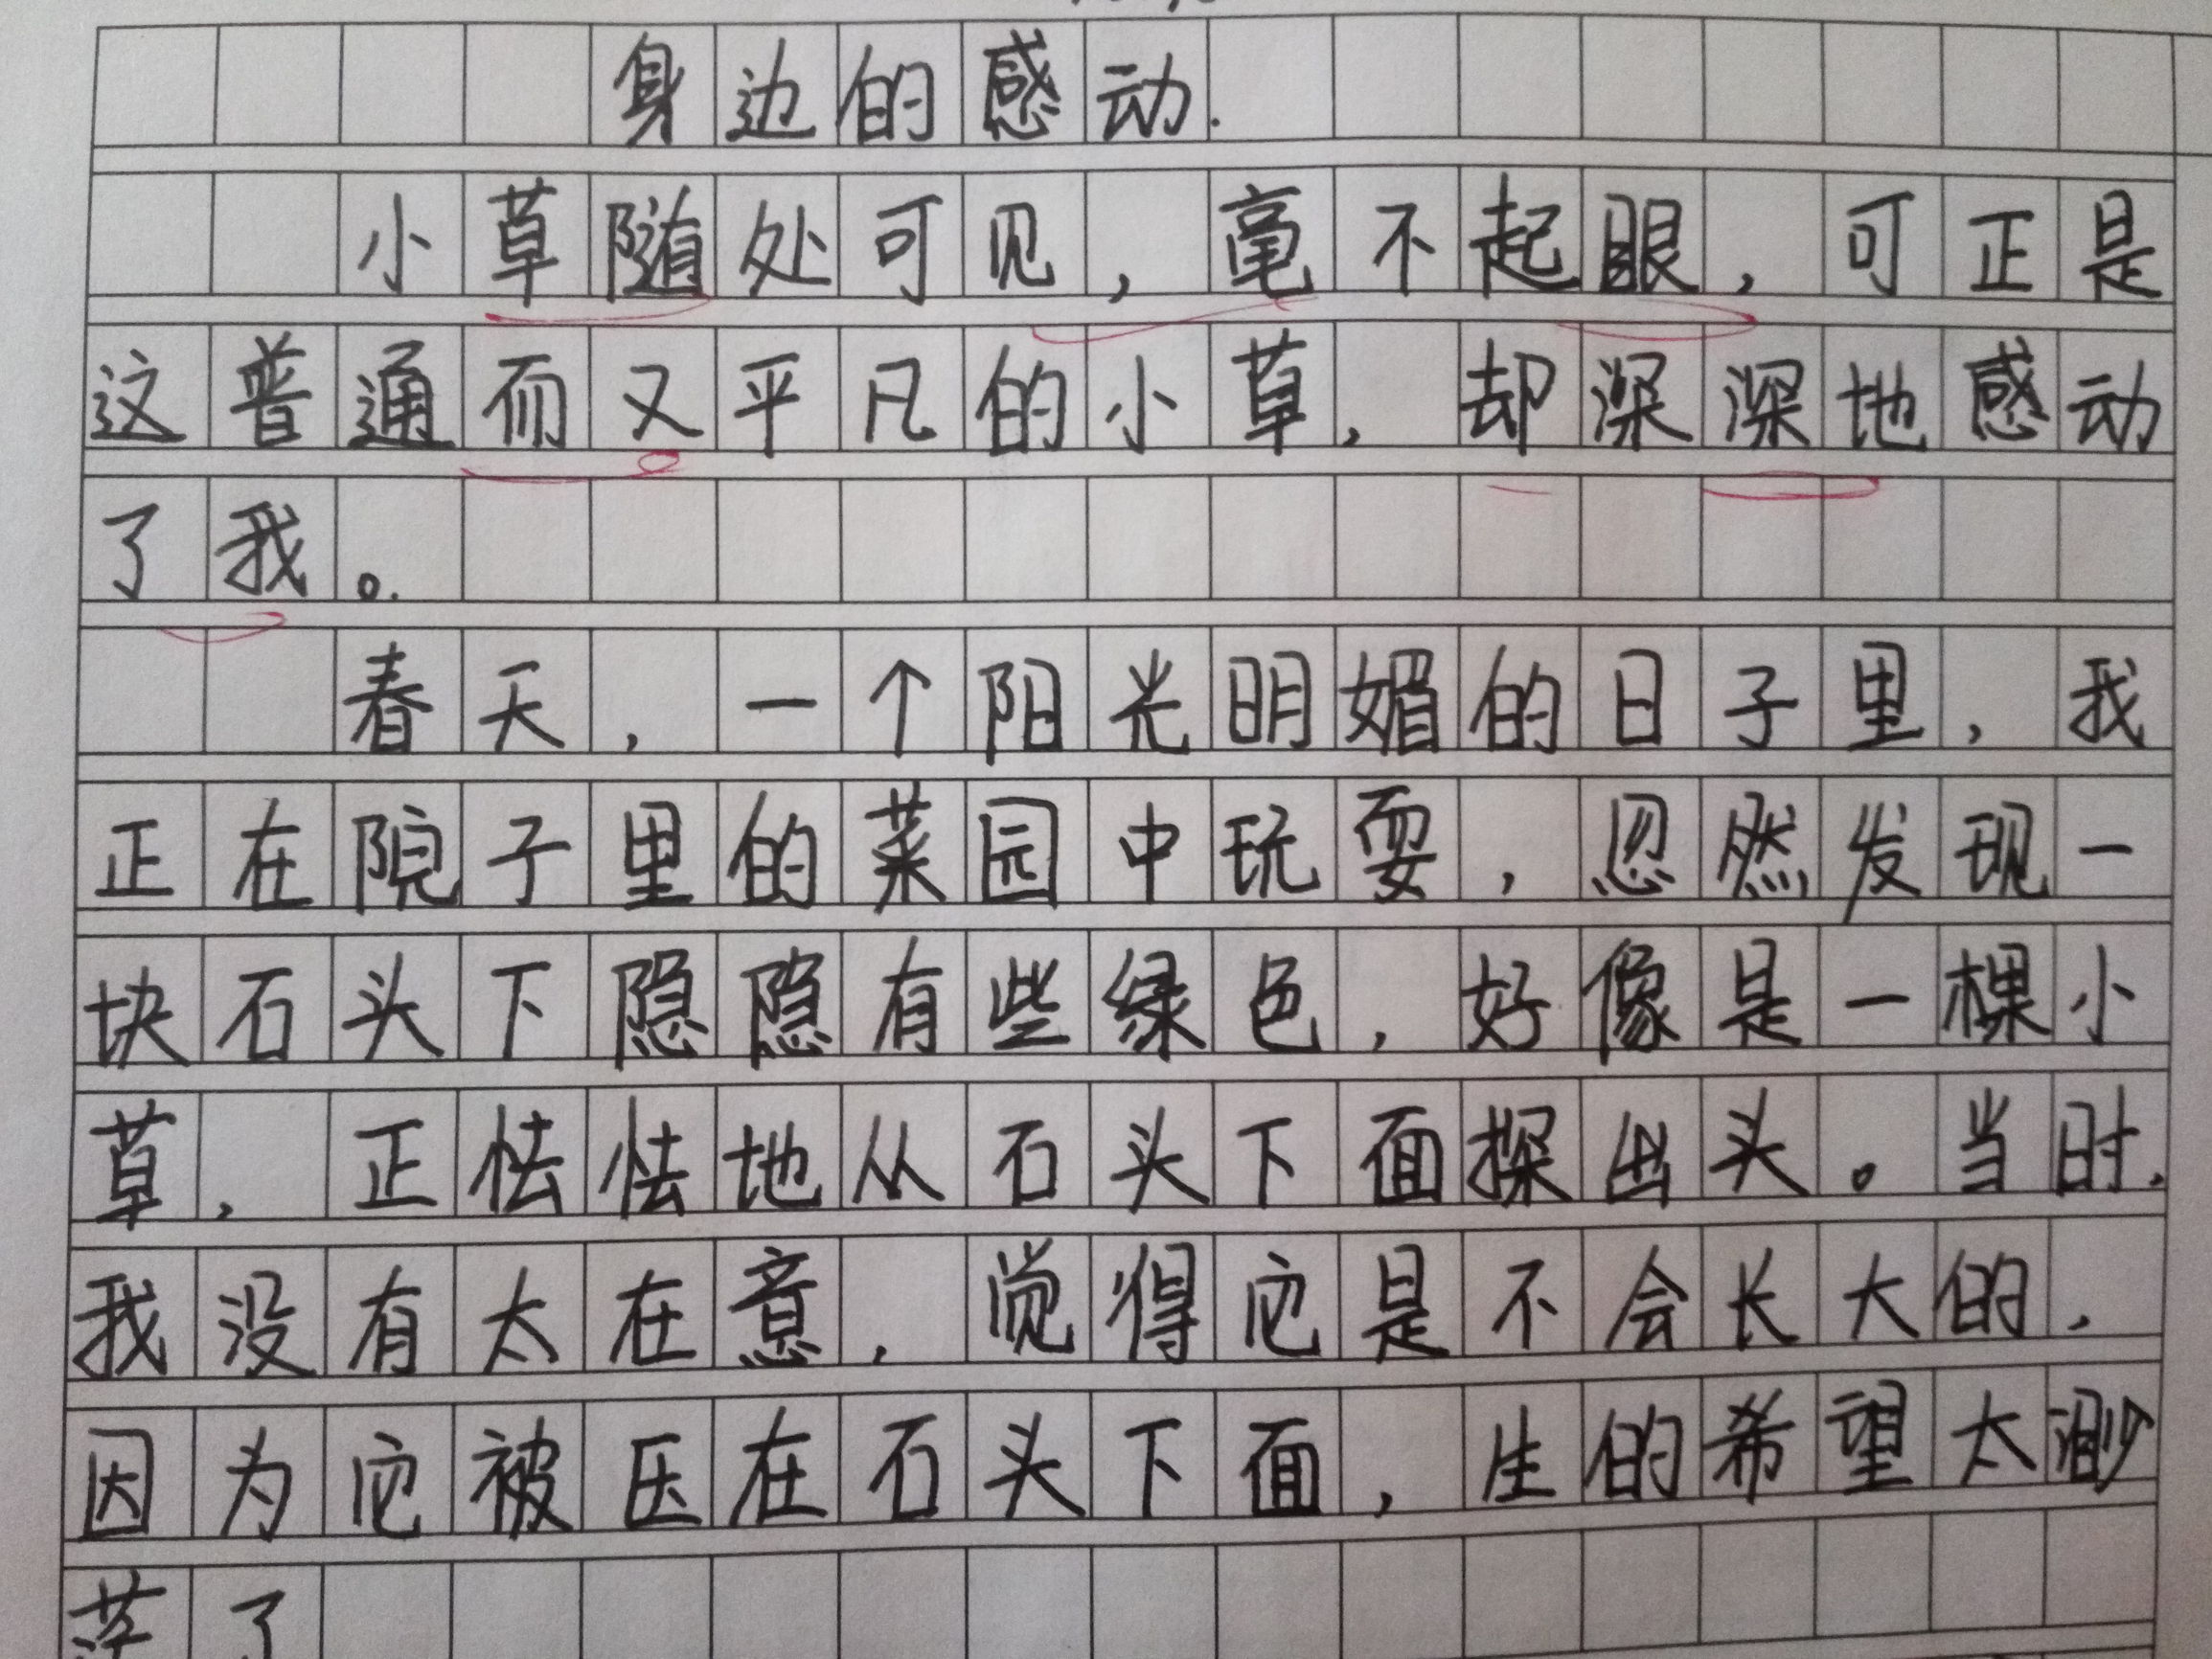 身边的感动.
小草随处可见,毫不起眼,可正是
这普通而又平凡的小草,却深深地感动
了我。
春天,一个阳光明媚的日子里,我
正在院子里的菜园中玩耍,忽然发现一
块石头下隐隐有些绿色,好像是一棵小
草,正怯怯地从石头下面探出头。当时,
我没有太在意,觉得它是不会长大的,
因为它被压在石头下面,生的希望太渺
茫了